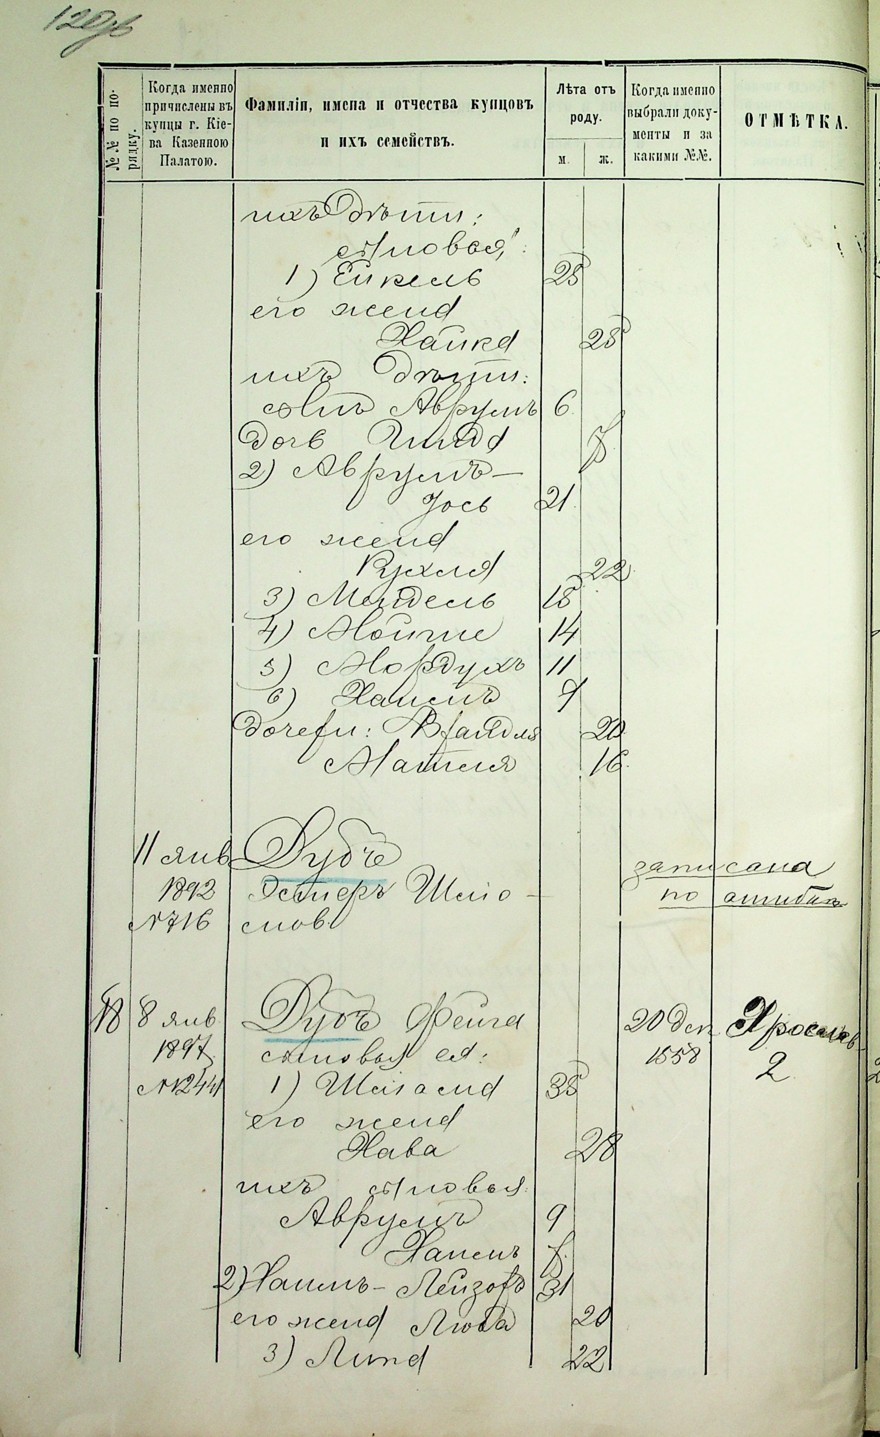 120 об
№№ по порядку.
Когда именно причислены въ купцы г. Кіева Казенною Палатою.
Фамиліи, имена и отчества купцовъ и ихъ семействъ.
Лѣта отъ роду.
м. ж.
Когда именно выбрали документы и за какими №№.
ОТМѢТКА.
ихъ Дѣти:
сыновья:
1) Ейкель 25
его жена
Хайка 25
ихъ Дѣти:
сынъ Аврумъ 6
Дочь
2) Аврумъ-
Іось 21
его жена
Рухля 22
3) Мендель 18
4) Мойше 14
5) Мордухъ 11
6) Хаимъ
Дочери: 20
16
11 янв Дубъ записана
1892 Эстеръ Шліо- по ошибкѣ
№716 мов
18 8 янв Дубъ Фейга 20 Дек Ярославъ
1897 сыновья ея: 1558 2
№1244 1) 35
его жена
Хава 28
ихъ сыновья:
Аврумъ 9
Хаимъ
2) Хаимъ-Лейзоръ 31
его жена Люба 20
3) 22